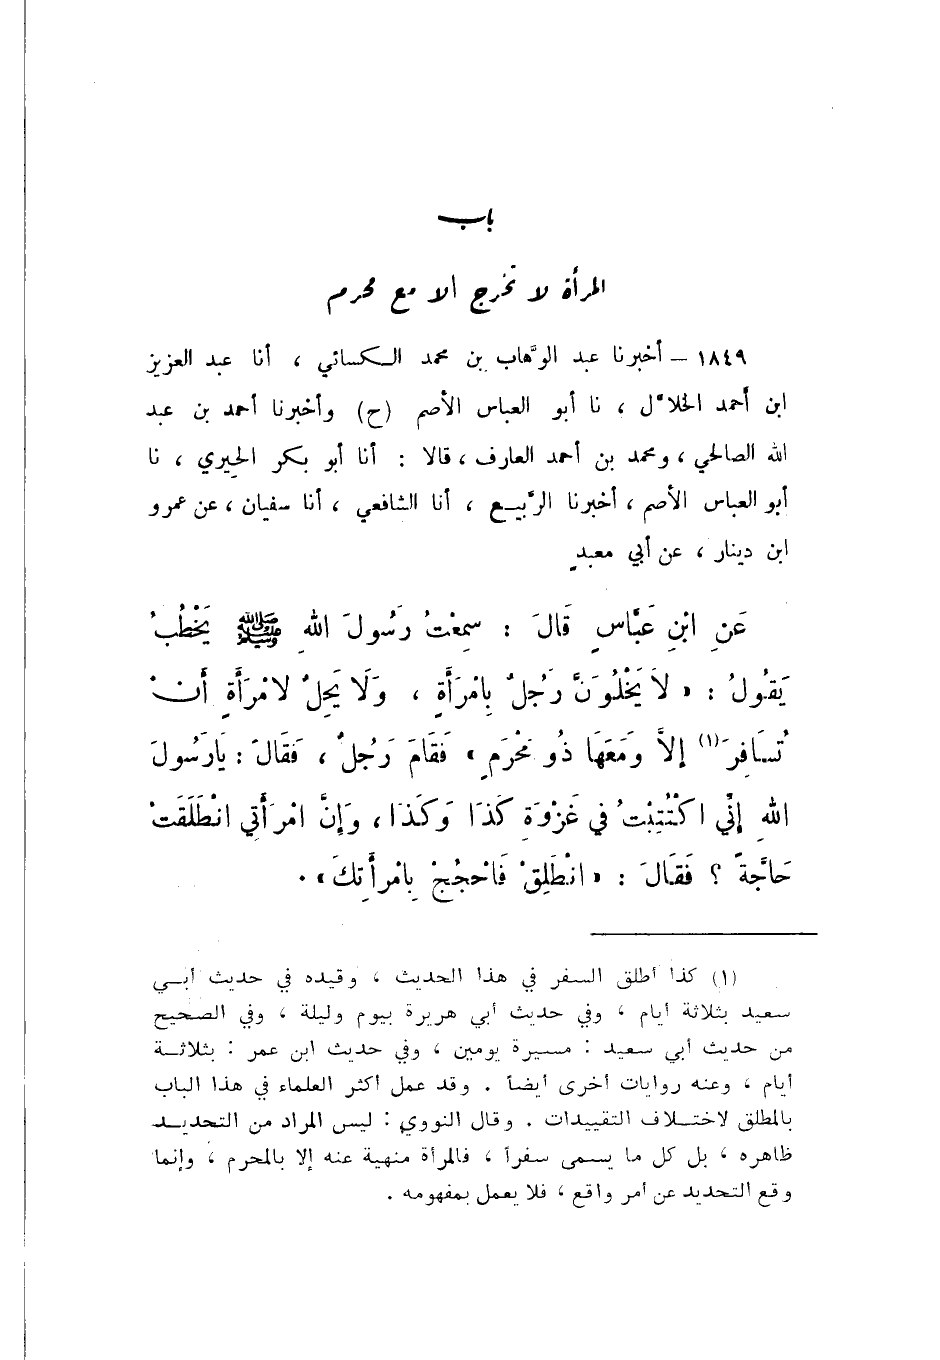 باب
المرأة لا تخرج الا مع محرم
١٨٤٩ – أخبرنا عبد الوهاب بن محمد الكسائي ، أنا عبد العزيز
ابن أحمد الخلال ، نا أبو العباس الأصم (ح) وأخبرنا أحمد بن عبد
الله الصالحي ، ومحمد بن أحمد العارف ، قالا : أنا أبو بكر الحيري ، نا
أبو العباس الأصم ، أخبرنا الربيع ، أنا الشافعي ، أنا سفيان ، عن عمرو
ابن دينار ، عن أبي معبد
عَنِ ابْنِ عَبَّاسٍ قَالَ : سَمِعْتُ رَسُولَ اللهِ ﷺ يَخْطُبُ
يَقُولُ : « لاَ يَخْلُوَنَّ رَجُلٌ بِامْرَأَةٍ ، وَلَا يَحِلُ لامْرَأَةٍ أَنْ
تُسَافِرَ(١) إِلاَّ وَمَعَهَا ذُو مَحْرَمٍ » فَقَامَ رَجُلٌ ، فَقَالَ : يَارَسُولَ
اللهِ إِنِّي اكْتُتِبْتُ فِي غَزْوَةِ كَذَا وَكَذَا ، وَإِنَّ امْرَأَتِي انْطَلَقَتْ
حَاجَّةً ؟ فَقَالَ : « انْطَلِقْ فَاحْجُجْ بِامْرَأَتِكَ » .
(١) كذا أطلق السفر في هذا الحديث ، وقيده في حديث أبي
سعيد بثلاثة أيام ، وفي حديث أبي هريرة بيوم وليلة ، وفي الصحيح
من حديث أبي سعيد : مسيرة يومين ، وفي حديث ابن عمر : بثلاثة
أيام ، وعنه روايات أخرى أيضاً . وقد عمل أكثر العلماء في هذا الباب
بالمطلق لاختلاف التقييدات . وقال النووي : ليس المراد من التحديد
ظاهره ، بل كل ما يسمى سفراً ، فالمرأة منهية عنه إلا بالمحرم ، وإنما
وقع التحديد عن أمر واقع ، فلا يعمل بمفهومه .